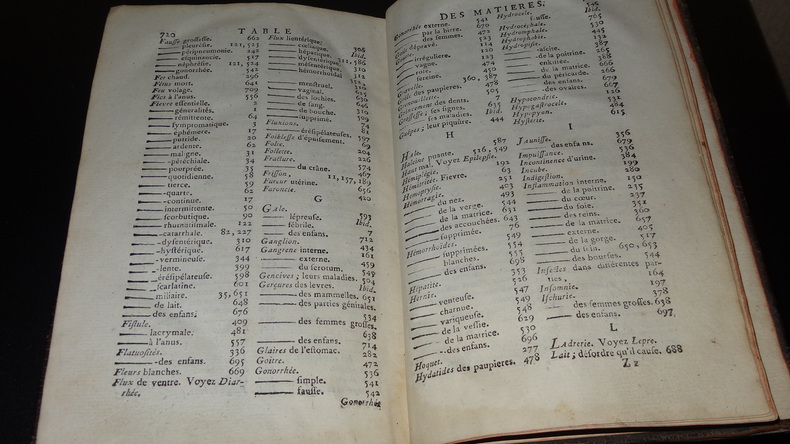 720 TABLE
Fausse grossesse. 662
—— pleurésie, 121, 523
—— péripneumonie, 242
—— esquinancie, 517
—— néphrésie, 121, 524
—— gonorrhée, 542
Feu chaud. 296
Fœtus mort. 641
Feu volage. 709
Fics à l'anus. 556
Fievre essentielle. 2
—— généralités. 1
—— rémittente. 64
—— symptomatique. 3
—— éphémere. 17
—— putride. 20
—— ardente. 62
—— maligne. 31
—— -péréchiale. 34
—— pourprée. 35
—— quotidienne. 58
—— tierce. 59
—— -quarte. 62
—— -continue. 17
—— intermittente. 50
—— scorbutique. 90
—— rhumatismale. 122
—— -catarrhale. 82, 227
—— -dysentérique. 310
—— -hystérique. 617
—— -vermineuse. 344
—— -lente. 399
—— érésipélateuse. 598
—— scarlatine. 601
—— miliaire. 35, 651
—— de lait. 648
—— des enfans. 676
Fistule. 409
—— lacrymale. 481
—— à l'anus. 557
Flatuosités. 336
—— -des enfans. 695
Fleurs blanches. 669
Flux de ventre. Voyez Diar-
rhée.
Flux lientérique. 306
—— cœliaque. Ibid.
—— hépatique.
—— dysentérique. 311, 586
—— mésentérique. 312
—— hémorrhoïdal
—— menstruel.
—— vaginal.
—— des lochies.
—— de sang. 646
—— de bouche. 310
—— supprimé. 509
Fluxions. 81
—— érésipélateuses. 599
Foiblesse d'épuisement. 69
Folie. 204
Follette. 226
Fracture.
—— du crâne. 574
Frisson, 11, 157, 189
Fureur utérine. 467
Furoncle. 615
G 420
Gale.
—— lépreuse. 593
—— fébrile. Ibid.
—— des enfans. 7
Ganglion. 712
Gangrene interne. 434
—— externe. 161
—— du scrotum. 459
Gencives; leurs maladies. 549
Gerçures des levres. 504
—— des mammelles. 651
—— des parties génitales.
534
—— des femmes grosses.
638
—— des enfans. 714
Glaires de l'estomac. 282
Goitre. 472
Gonorrhée. 536
—— simple. 541
—— fausse. 542
Gonorrhée
DES MATIERES.
Gonorrhée externe. 541
—— par la birre. 670
—— des femmes. 542
Goût dépravé. 114
—— irrégulière. 120
—— vague. 123
—— roïe. 474
Gravelle. 360, 387
Grêle des paupieres. 478
Grenouillette. 505
Grincement des dents. 7
Grossesse; ses signes. 635
—— ses maladies. Ibid.
Guêpes; leur piquûre. 444
H
Hâle. 587
Haleine puante. 516, 549
Haut mal. Voyez Epilepsie.
Hémiplégie. 192
Hémitritée. Fievre 63
Hémoptysie. 251
Hémorragie. 493
—— du nez. 493
—— de la verge. 544
—— de la matrice. 631
—— des accouchées. 643
—— supprimée. 76
Hémorrhoïdes. 549
—— supprimées. 554
—— blanches. 555
—— des enfans. 698
Hépatite. 353
Hernie. 526
—— venteuse. 547
—— charnue. 549
—— variqueuse. 548
—— de la vessie. 629
—— de la matrice. 530
—— -des enfans. 696
Hoquet. 277
Hydatides des paupieres. 478
Hydrocele. 546
—— fausse. 765
Hydrocéphale. 530
Hydromphale. 445
Hydrophobie. 132
Hydropisie. 387
—— -ascite.
—— -de la poitrine. 385
—— enkistée. 388
—— de la matrice. 666
—— du péricarde. 266
—— des enfans. 679
—— des ovaires. 667
Hypocondrie. 126
Hypogastrocele. 531
Hypopyon. 484
Hystérie. 615
I
Jaunisse. 356
—— des enfans. 679
Impuissance. 536
Incontinence d'urine. 384
Incube. 199
Indigestion. 280
Inflammation interne. 150
—— de la poitrine. 235
—— du cœur. 237
—— du foie. 351
—— des reins. 360
—— de la matrice. 657
—— externe. 405
—— de la gorge. 517
—— du sein. 650, 653
—— des bourses. 544
Infectes dans différentes par-
ties, 164
Insomnie. 197
Ischurie. 378
—— des femmes grosses. 638
—— des enfans. 697
L
Ladrerie. Voyez Lepre.
Lait; désordre qu'il cause. 688
Zz